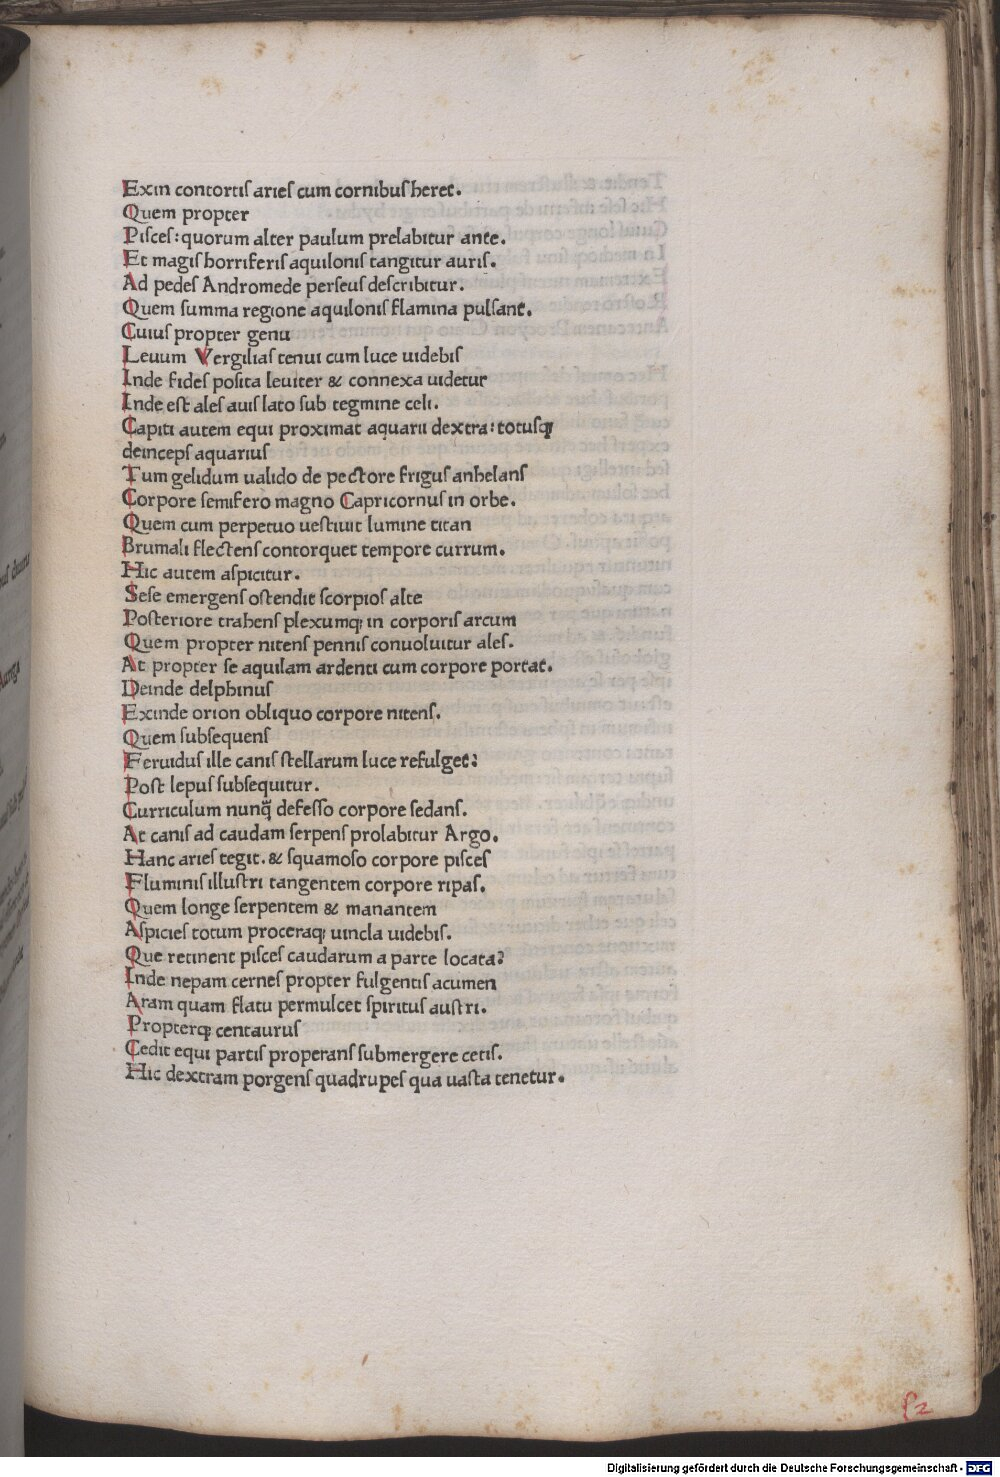 Exin contortis aries cum cornibus heret.
Quem propter
Pisces: quorum alter paulum prelabitur ante.
Et magis horriferis aquilonis tangitur auris.
Ad pedes Andromede perseus describitur.
Quem summa regione aquilonis flamina pulsant.
Cuius propter genu
Leuum Vergilias tenui cum luce uidebis
Inde fides posita leuiter & connexa uidetur
Inde est ales auis lato sub tegmine celi.
Capiti autem equi proximat aquarii dextra: totusqꝫ
deinceps aquarius
Tum gelidum ualido de pectore frigus anhelans
Corpore semifero magno Capricornus in orbe.
Quem cum perpetuo uestiuit lumine titan
Brumali flectens contorquet tempore currum.
Hic autem aspicitur.
Sese emergens ostendit scorpios alte
Posteriore trahens plexumqꝫ in corporis arcum
Quem propter nitens pennis conuoluitur ales.
At propter se aquilam ardenti cum corpore portat.
Deinde delphinus
Exinde orion obliquo corpore nitens.
Quem subsequens
Feruidus ille canis stellarum luce refulget:
Post lepus subsequitur.
Curriculum nunq̃ defesso corpore sedans.
At canis ad caudam serpens prolabitur Argo.
Hanc aries tegit. & squamoso corpore pisces
Fluminis illustri tangentem corpore ripas.
Quem longe serpentem & manantem
Aspicies totum proceraqꝫ uincla uidebis.
Que retinent pisces caudarum a parte locata?
Inde nepam cernes propter fulgentis acumen
Aram quam flatu permulcet spiritus austri.
Propterqꝫ centaurus
Cedit equi partis properans submergere cetis.
Hic dextram porgens quadrupes qua uasta tenetur.
f2
Digitalisierung gefördert durch die Deutsche Forschungsgemeinschaft - DFG